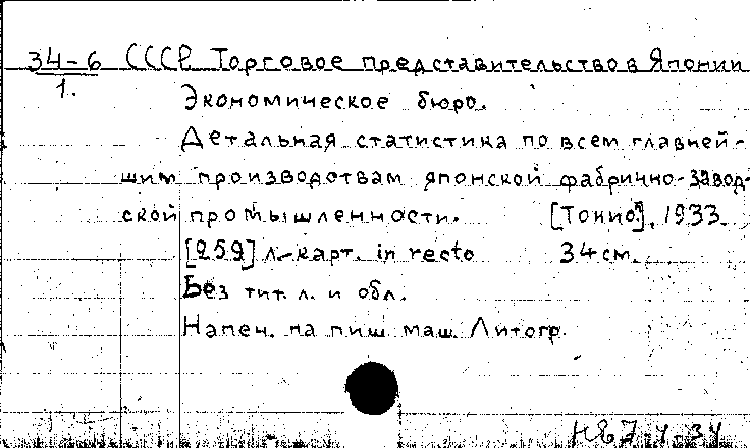 34-6 СССР Торговое представительство в Японии
1. Экономическое бюро.
Детальная статистика по всем главней-
шим производствам японской фабрично-завод-
ской промышленности. [Токио]. 1933.
[259] л.-карт. in recto 34 см.
Без тит. л. и обл.
Напеч. на пиш. маш. Литогр.